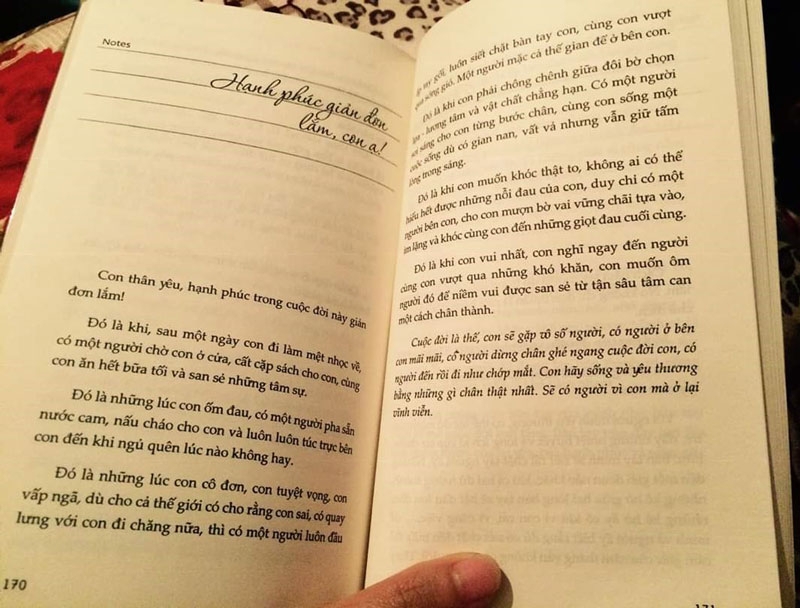 Notes
Hạnh phúc giản đơn
lắm, con ạ!
Con thân yêu, hạnh phúc trong cuộc đời này giản
đơn lắm!
Đó là khi, sau một ngày con đi làm mệt nhọc về,
có một người chờ con ở cửa, cất cặp sách cho con, cùng
con ăn hết bữa tối và san sẻ những tâm sự.
Đó là những lúc con ốm đau, có một người pha sẵn
nước cam, nấu cháo cho con và luôn luôn túc trực bên
con đến khi ngủ quên lúc nào không hay.
Đó là những lúc con cô đơn, con tuyệt vọng, con
vấp ngã, dù cho cả thế giới có cho rằng con sai, có quay
lưng với con đi chăng nữa, thì có một người luôn đầu
170
ấp tay gối, luôn siết chặt bàn tay con, cùng con vượt
qua sóng gió. Một người mặc cả thế gian để ở bên con.
Đó là khi con phải chông chênh giữa đôi bờ chọn
lựa - lương tâm và vật chất chẳng hạn. Có một người
soi sáng cho con từng bước chân, cùng con sống một
cuộc sống dù có gian nan, vất vả nhưng vẫn giữ tấm
lòng trong sáng.
Đó là khi con muốn khóc thật to, không ai có thể
hiểu hết được những nỗi đau của con, duy chỉ có một
người bên con, cho con mượn bờ vai vững chãi tựa vào,
im lặng và khóc cùng con đến những giọt đau cuối cùng.
Đó là khi con vui nhất, con nghĩ ngay đến người
cùng con vượt qua những khó khăn, con muốn ôm
người đó để niềm vui được san sẻ từ tận sâu tâm can
một cách chân thành.
Cuộc đời là thế, con sẽ gặp vô số người, có người ở bên
con mãi mãi, có người dừng chân ghé ngang cuộc đời con, có
người đến rồi đi như chớp mắt. Con hãy sống và yêu thương
bằng những gì chân thật nhất. Sẽ có người vì con mà ở lại
vĩnh viễn.
171